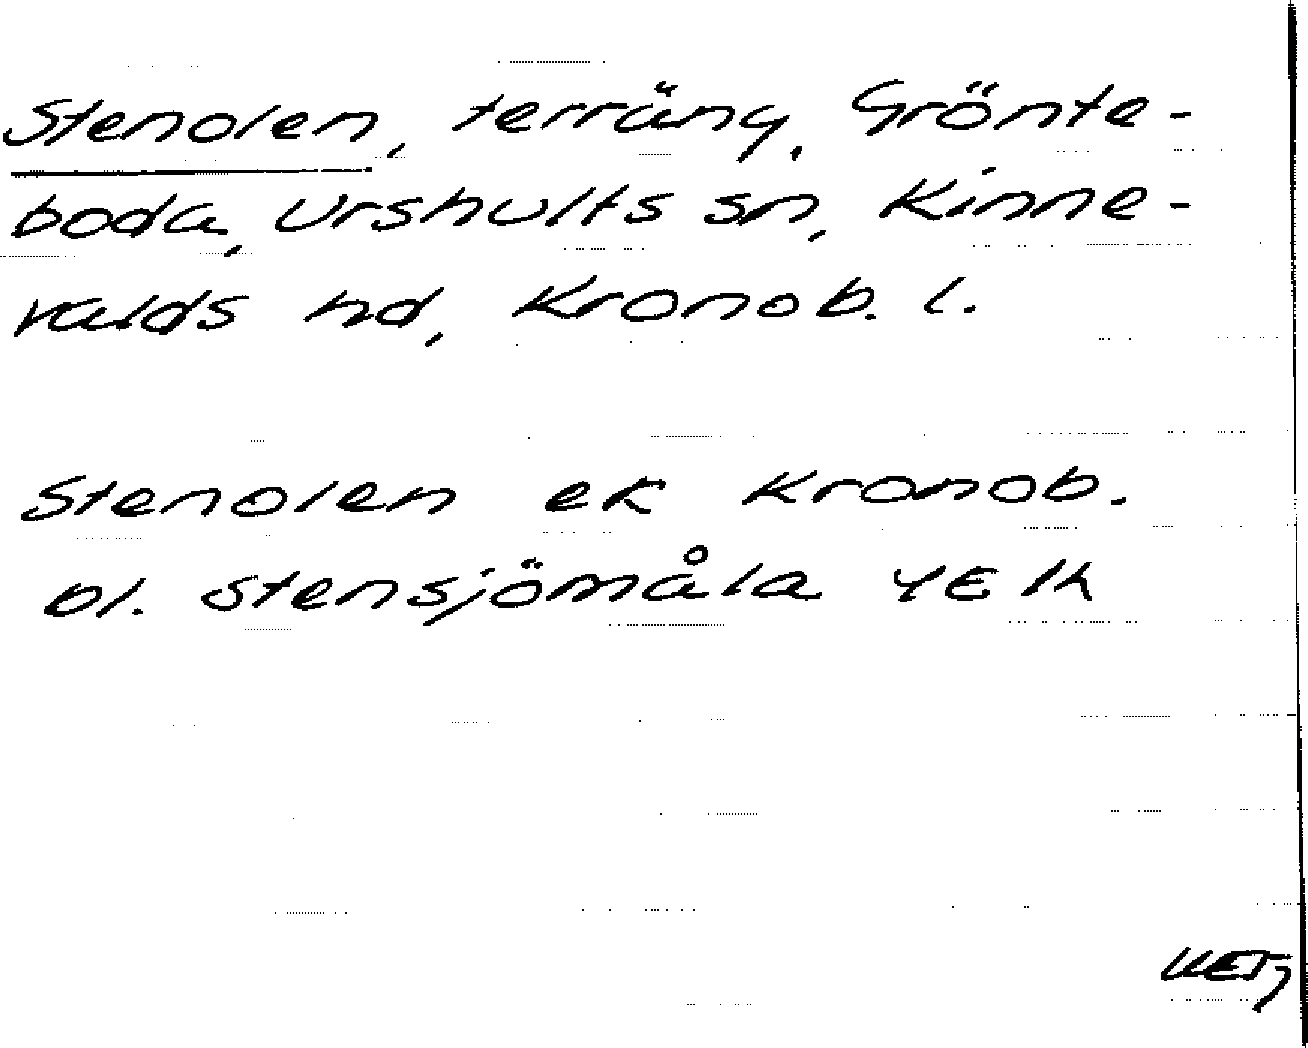 Stenolen, terräng, Grönte-
boda, Urshults sn, Kinne-
valds hd, Kronob. l.
Stenolen ek Kronob.
bl. Stensjömåla 4E 1h